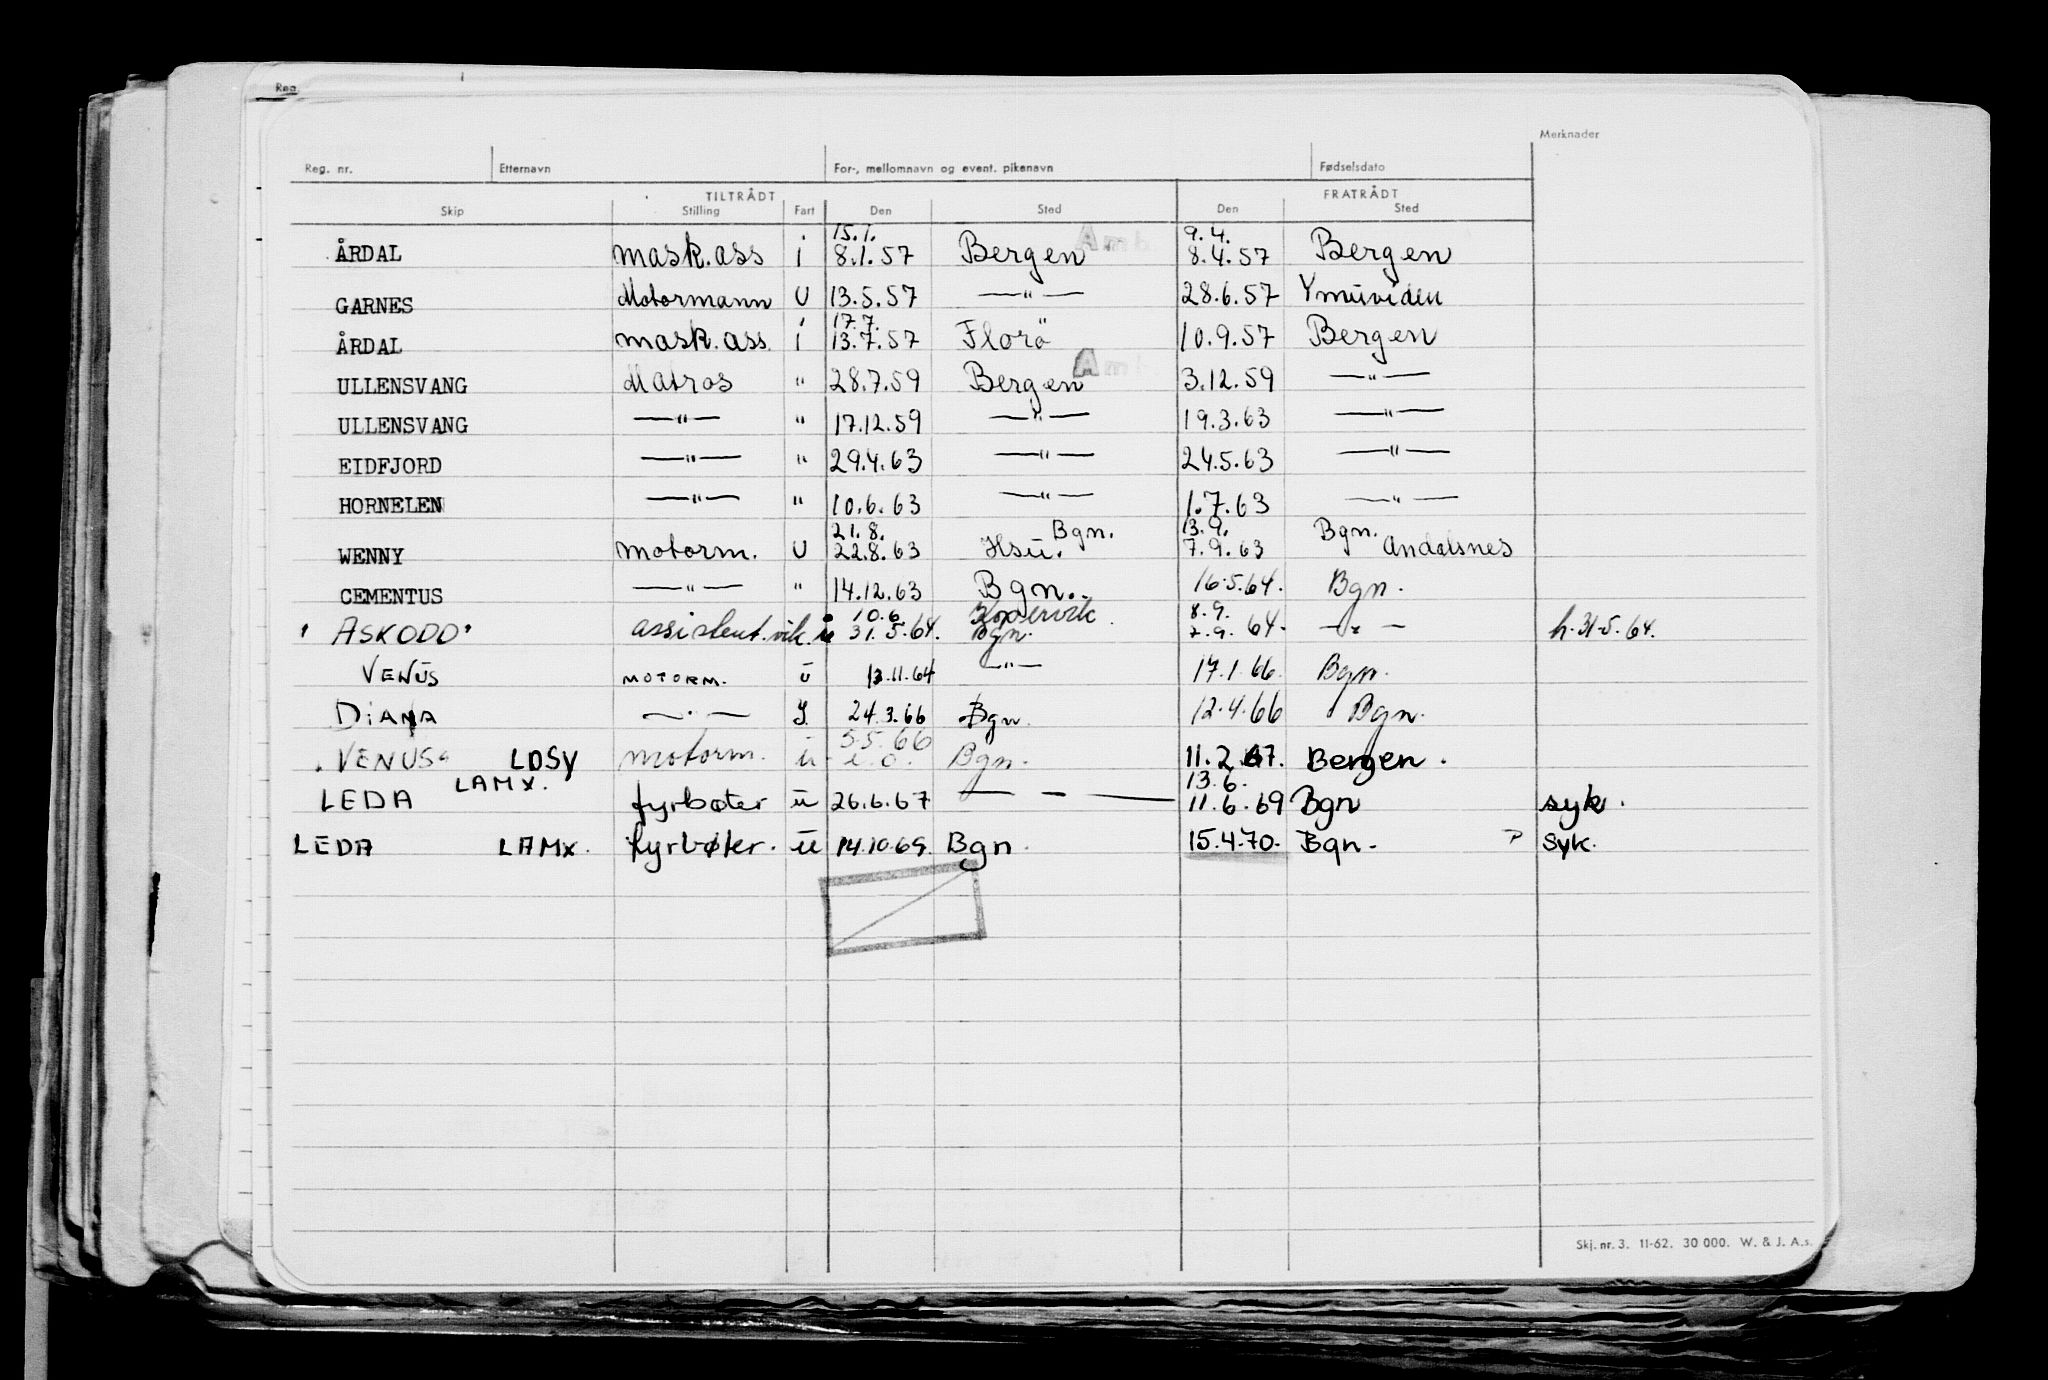 Reg.
Merknader
Reg. nr. Etternavn For-, mellomnavn og event. pikenavn Fødselsdato
TILTRÅDT FRATRÅDT
Skip Stilling Fart Den Sted Den Sted
15.1. Amb. 9.4.
ÅRDAL mask.ass i 8.1.57 Bergen 8.4.57 Bergen
GARNES Motormann U 13.5.57 —"— 28.6.57 Ymuiden
17.7.
ÅRDAL mask.ass. i 13.7.57 Florö 10.9.57 Bergen
ULLENSVANG Matros " 28.7.59 Bergen Amb. 3.12.59 —"—
ULLENSVANG —"— " 17.12.59 —"— 19.3.63 —"—
EIDFJORD —"— " 29.4.63 —"— 24.5.63 —"—
HORNELEN —"— " 10.6.63 —"— 1.7.63 —"—
21.8. Bgn. 13.9. Bgn.
WENNY motorm. U 22.8.63 Hsu. 7.9.63 Andalsnes
CEMENTUS —"— " 14.12.63 Bgn. 16.5.64. Bgn.
10.6. Kopervik 8.9.
"ASKODD" assistent.vik. u 31.5.64. Bgn. 7.9. 64. —"— h.31-5.64.
VENUS MOTORM. u 13.11.64 —"— 17.1.66. Bgn.
DIANA —"— 24.3.66 Bgn. 12.4.66 Bgn.
5.5.66
VENUS LDSY motorm. u Bgn. 11.2.67. Bergen.
LAMX. 13.6.
LEDA fyrbøter u 26.6.67 — — — 11.6.69 Bgn syk.
LEDA LAMX. fyrbøter. u 14.10.69. Bgn. 15.4.70. Bgn. syk.
Skj. nr. 3. 11-62. 30 000. W. & J. A.s.